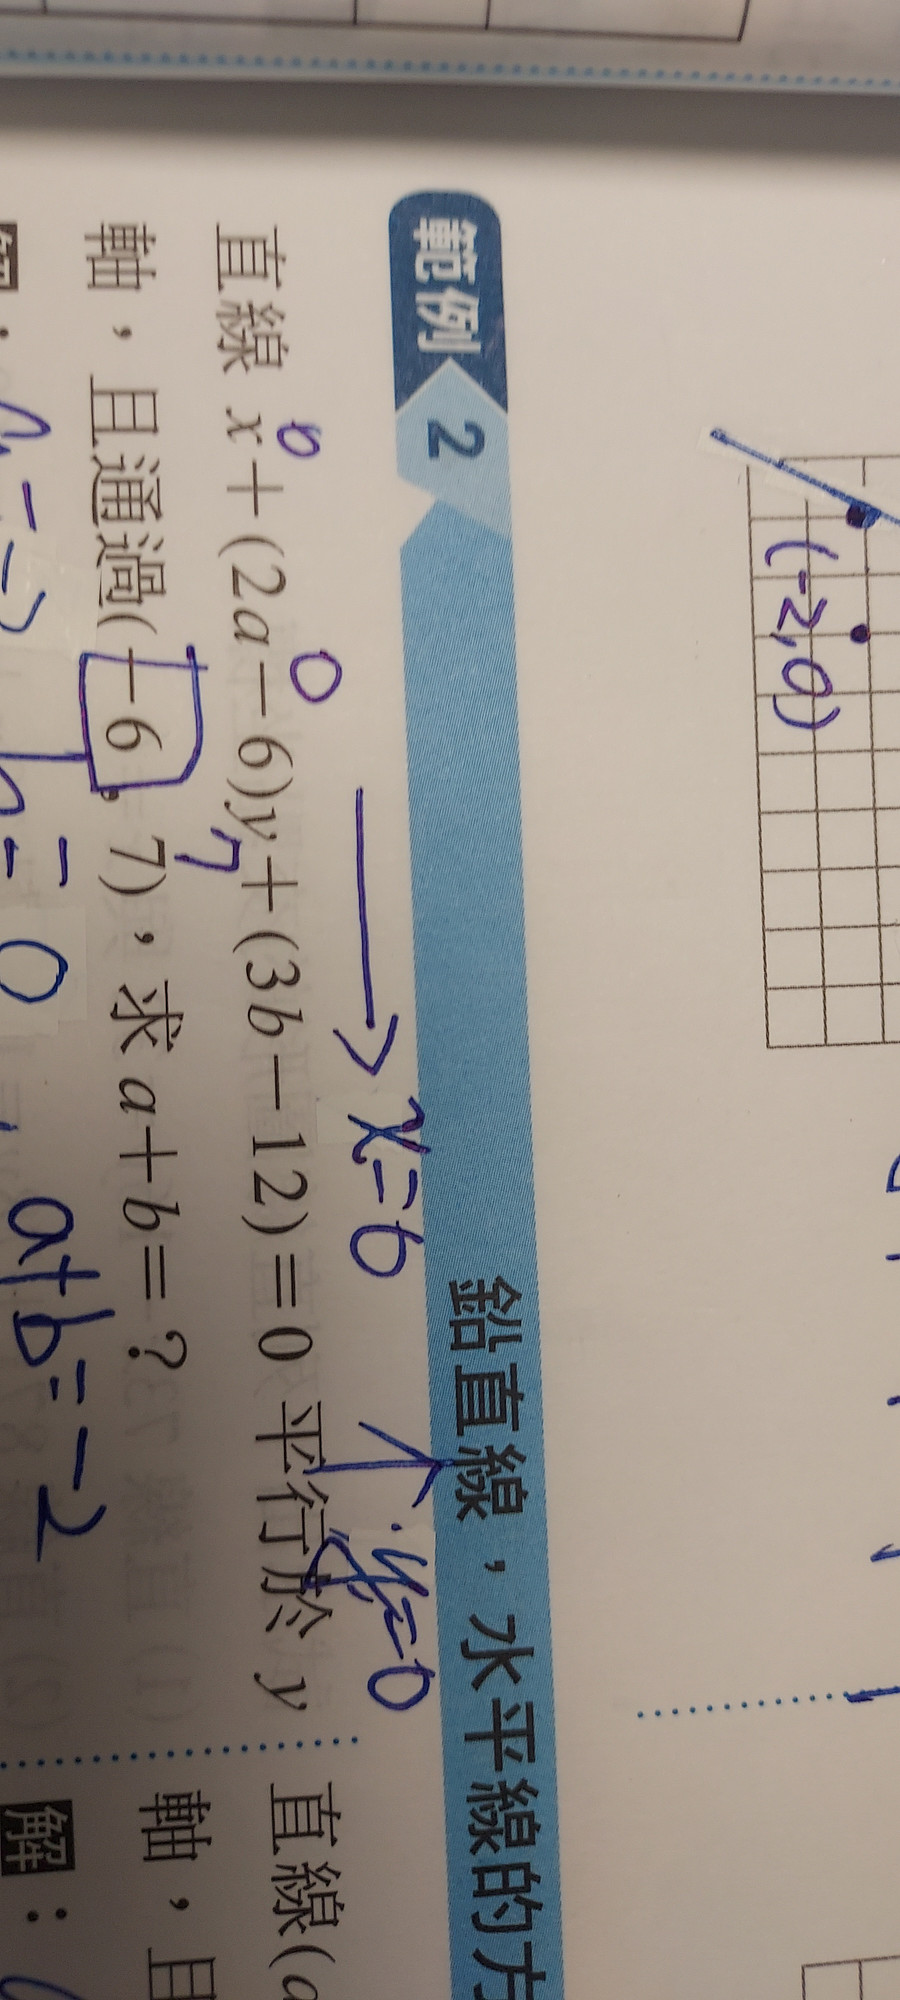 (-2,0)
範例 2 鉛直線，水平線的方
→ x=6
y=0
直線 x＋(2a－6)y＋(3b－12)＝0 平行於 y
軸，且通過(－6，7)，求 a＋b＝？
a+b=-2
直線(a
軸，且
解：